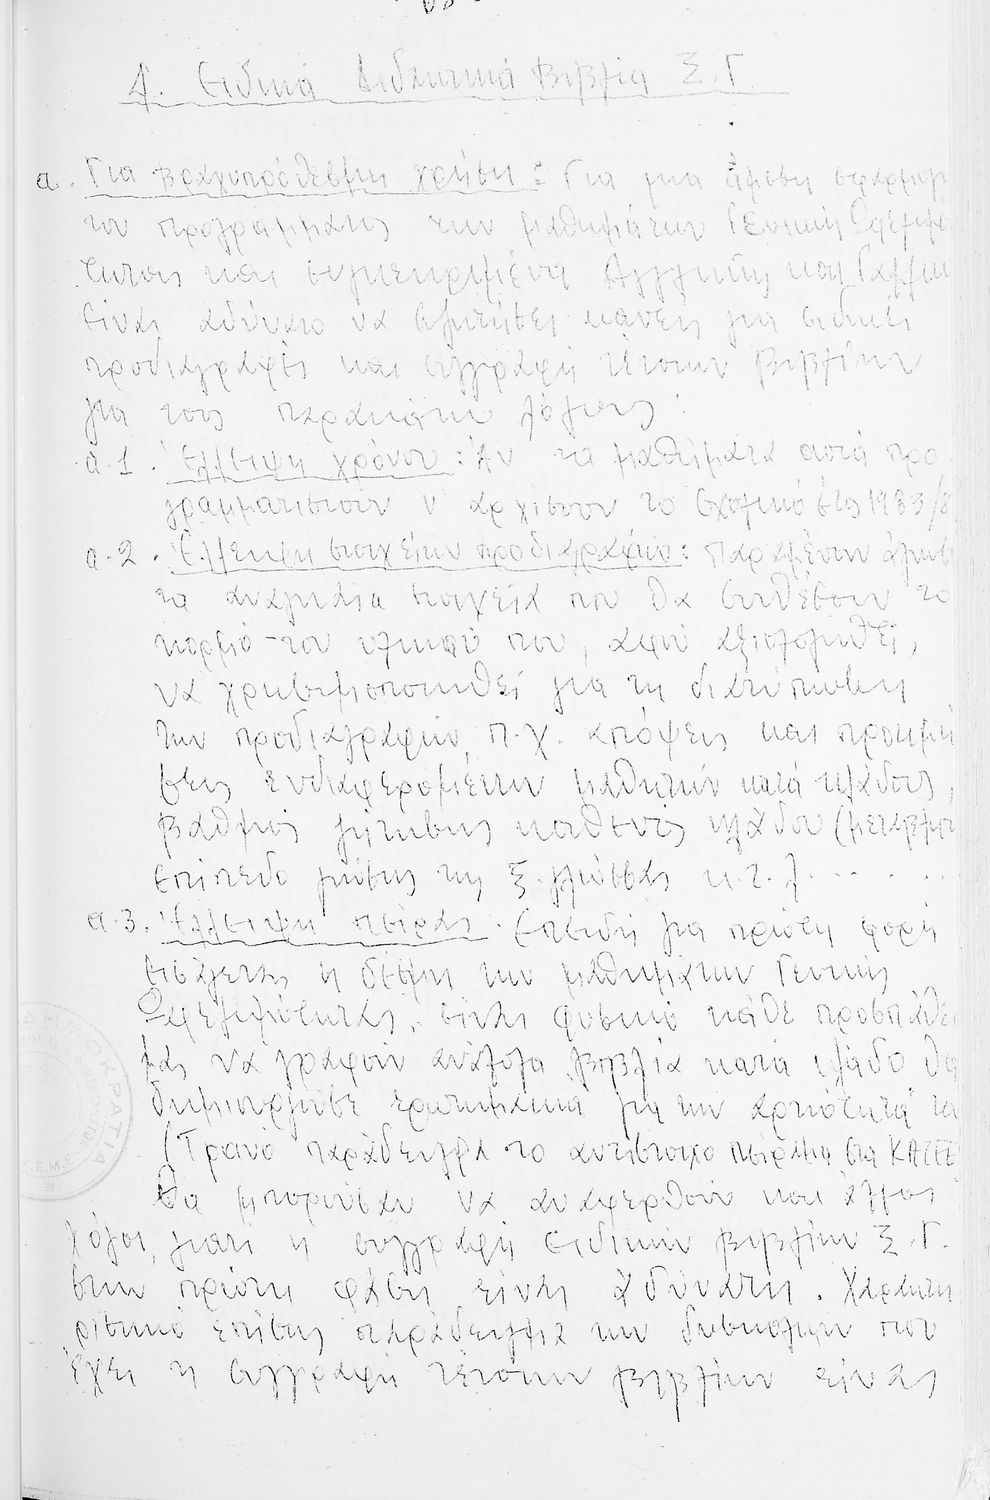 4. Ειδικά Διδακτικά Βιβλία Ξ.Γ.
α. Για Βραχυπρόθεσμη χρήση: Για μια άμεση εφαρμογ
του προγράμματος των μαθημάτων Γενικής Ωφελιμό
τητας και συγκεκριμένα Αγγλικής και Γαλλικ
είναι αδύνατο να συζητήσει κανείς για ειδικές
προδιαγραφές και συγγραφή τέτοιων βιβλίων
για τους παρακάτω λόγους:
α.1. Έλλειψη χρόνου: Αν τα μαθήματα αυτά προ
γραμματιστούν ν' αρχίσουν το σχολικό έτος 1983/8
α.2. Έλλειψη στοιχείων προδιαγραφών: Παραμένουν άγνωσ
τα αναγκαία στοιχεία που θα συνθέσουν το
κορμό του υλικού που, αφού αξιολογηθεί,
να χρησιμοποιηθεί για τη διατύπωση
των προδιαγραφών, π.χ. απόψεις και προτιμή
σεις ενδιαφερομένων μαθητών κατά κλάδους,
βαθμός γνώσης καθενός κλάδου
επίπεδο γνώσης της ξ. γλώσσας κ.τ.λ. ....
α.3. Έλλειψη πείρας. Επειδή για πρώτη φορά
εισάγεται η δέσμη των μαθημάτων Γενικής
Ωφελιμότητας, είναι φυσικό κάθε προσπάθει
μας να γραφούν ανάλογα βιβλία κατά κλάδο θα
δημιουργούσε ερωτηματικά για την αρτιότητά τα
(Τρανό παράδειγμα το αντίστοιχο πείραμα στα ΚΑΤΕΕ)
Θα μπορούσαν να αναφερθούν και άλλοι
λόγοι, γιατί η συγγραφή ειδικών βιβλίων Ξ.Γ.
στην πρώτη φάση είναι αδύνατη. Χαρακτη
ριστικό επίσης παράδειγμα των δυσκολιών που
έχει η συγγραφή τέτοιων βιβλίων είναι